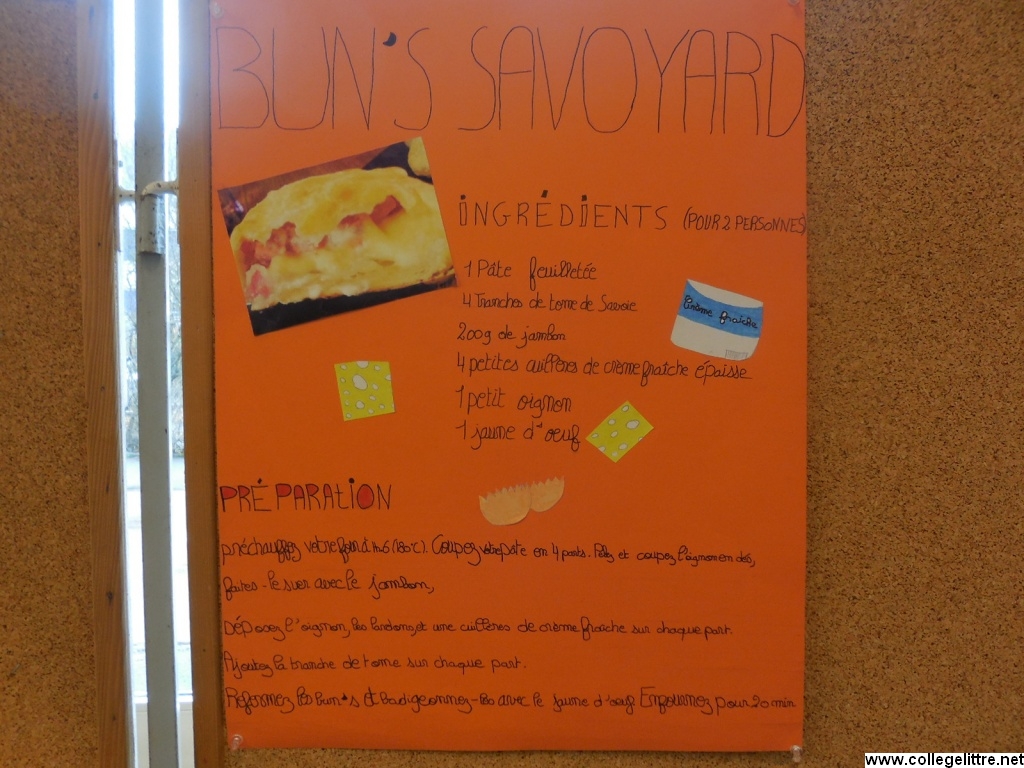 BUN'S SAVOYARD
INGRÉDIENTS (POUR 2 PERSONNES)
1 Pâte feuilletée
4 Tranches de tome de Savoie
200g de jambon
Crème fraîche
4 petites cuillères de crème fraîche épaisse
1 petit oignon
1 jaune d'oeuf
PRÉPARATION
préchauffez votre four à th.6 (180°C). Coupez votre pâte en 4 parts. Pelez et coupez l'oignon en dés,
faites-le suer avec le jambon,
Déposez l'oignon, les lardons, et une cuillères de crème fraîche sur chaque part.
Ajoutez la tranche de tome sur chaque part.
Refermez les bun's et badigeonnez-les avec le jaune d'oeuf Enfournez pour 20 min
www.collegelittre.net